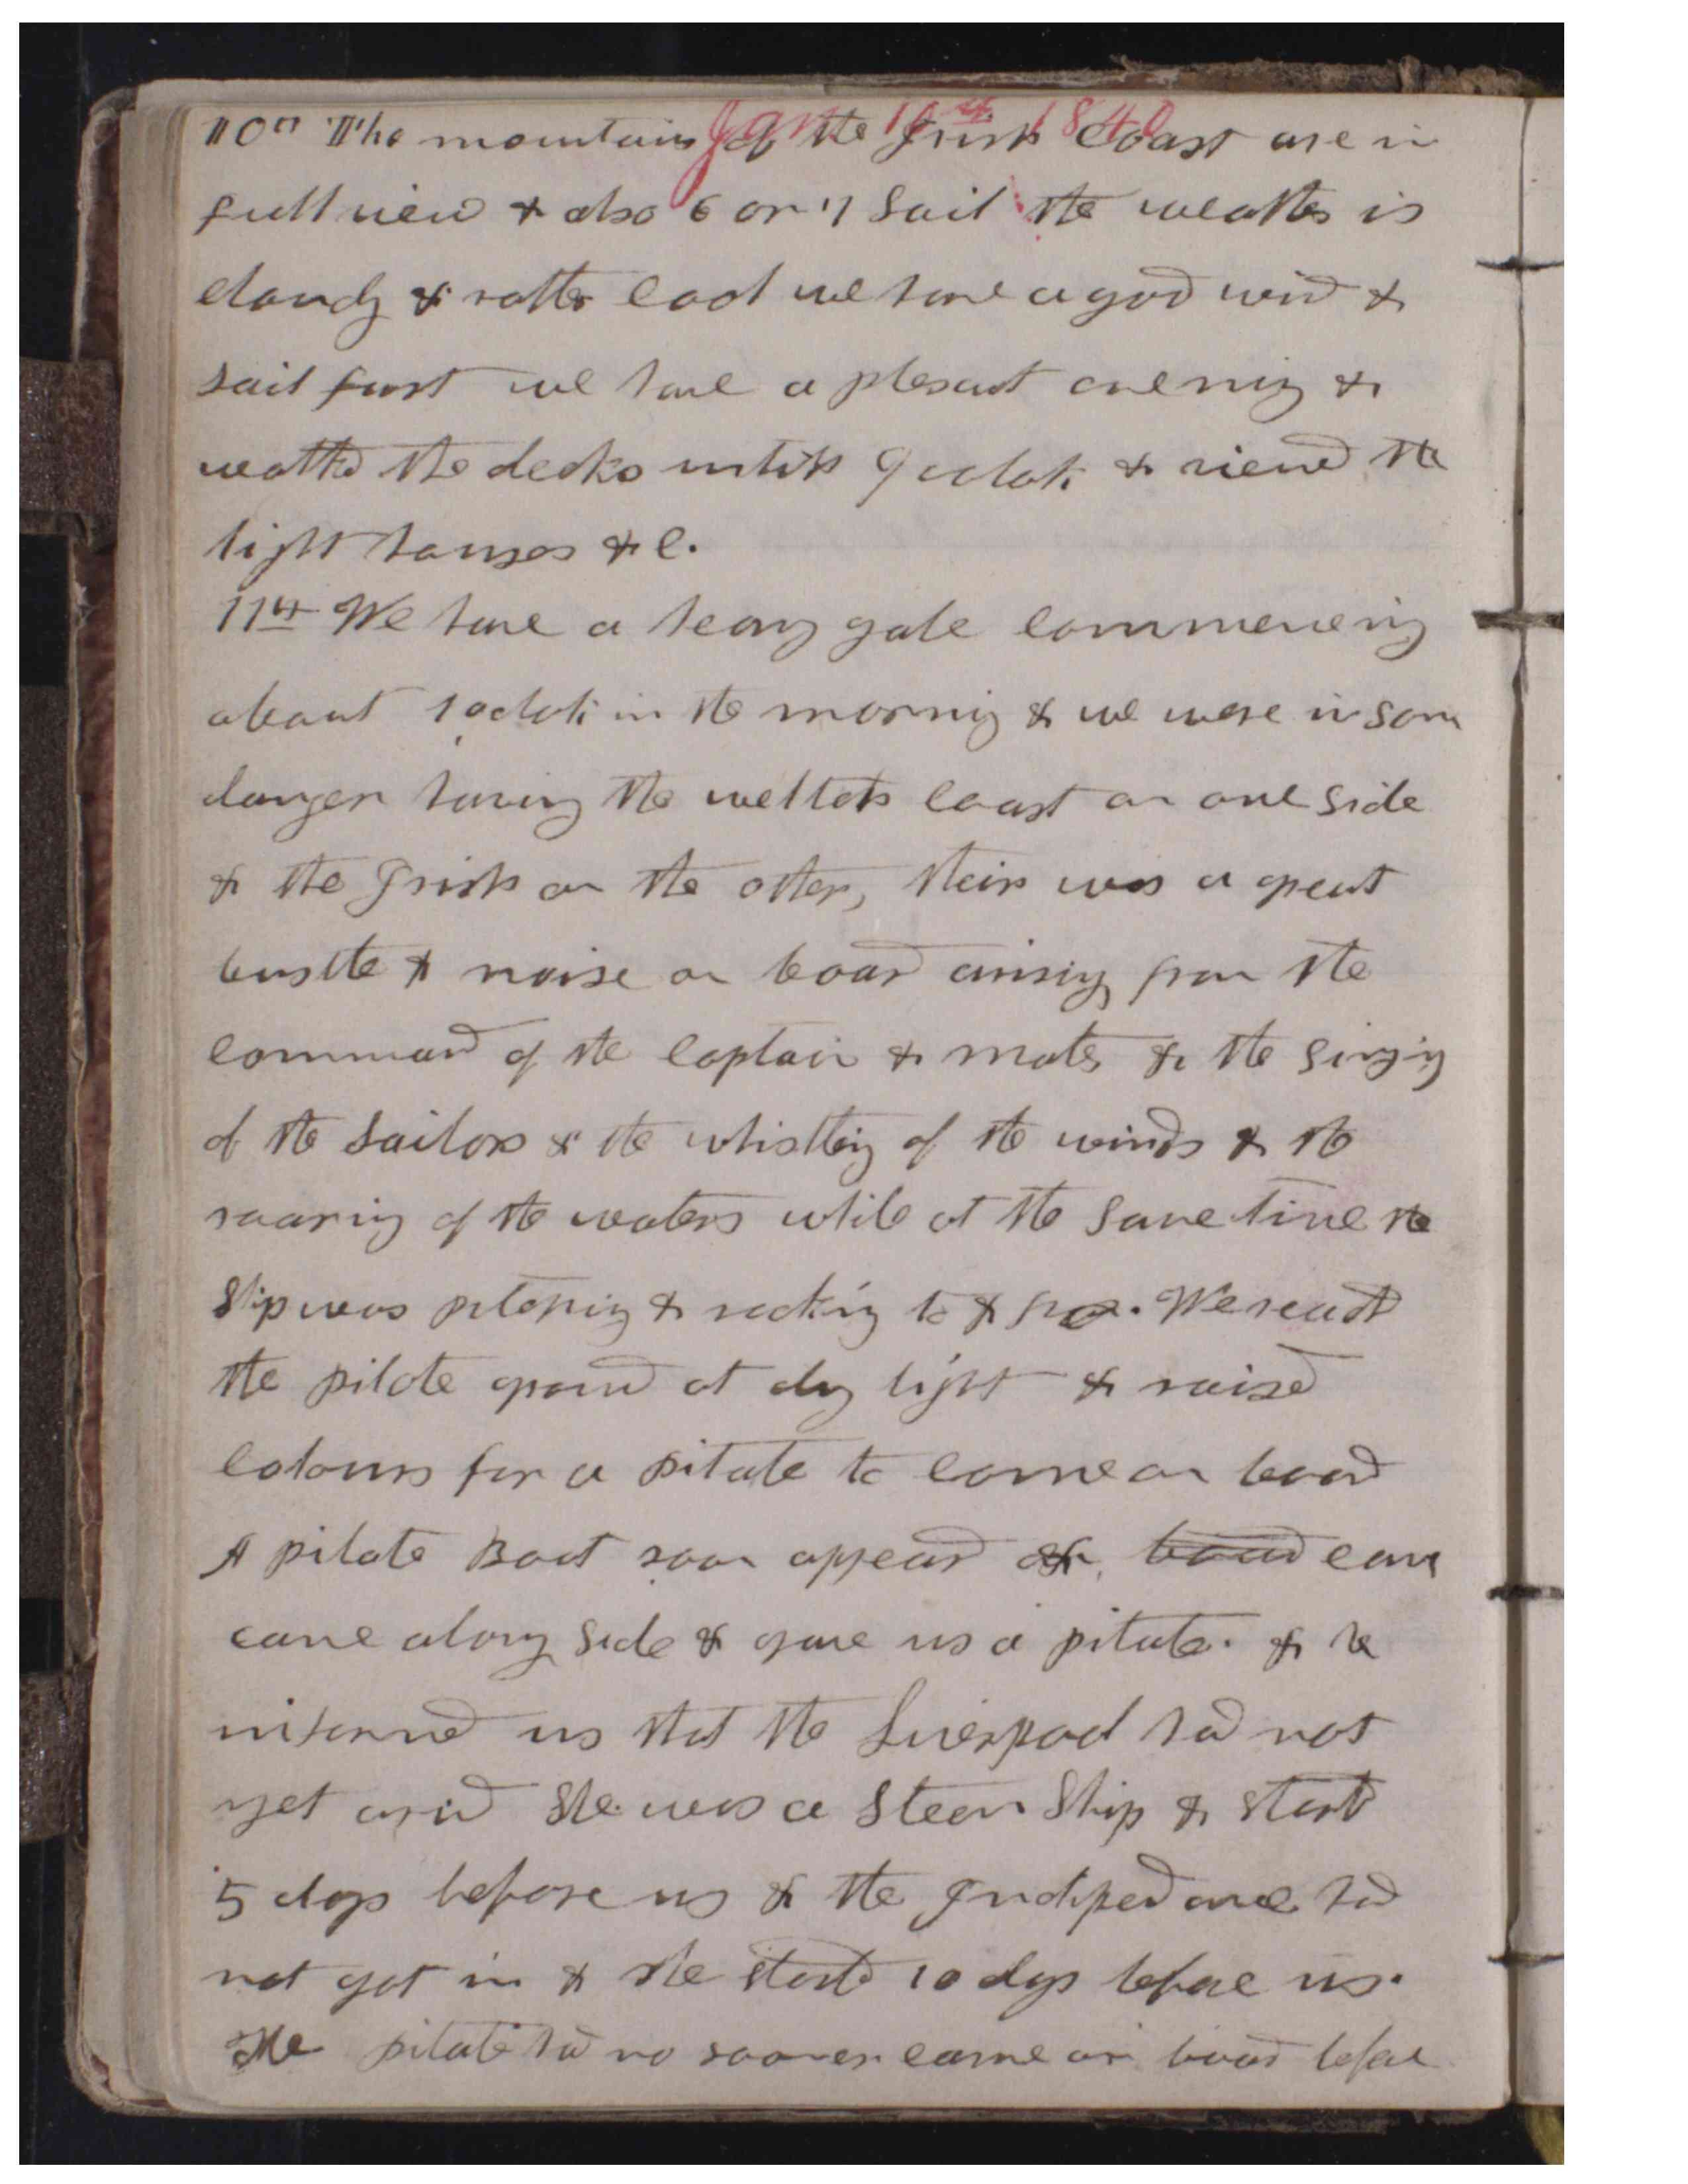 Jan 10th 1840
10th The mountains of the Irish Coast are in
full view & also 6 or 7 Sail the weather is
cloudy & rather cool we have a good wind &
sail fast we have a plesant evening &
walked the decks until 9 oclok & viewd the
light houses &c.
11th We have a heavy gale commenceing
about 1 oclok in the morning & we were in som
danger having the weltch coast on one side
& the Irish on the other, their was a great
bustle & noise on board arising from the
command of the Captain & mates & the singing
of the Sailors & the whistling of the winds & the
roaring of the waters while at the same time the
Ship was pitching & rocking to & fro. We reachd
the pilote ground at day light & raised
colours for a pilate to come on board
A pilate Boat soon appeard & board came
came along side & gave us a pilate. & he
informd us that the Liverpool had not
yet arivd She was a Steem Ship & startd
5 days before us & the Indipendance had
not got in & she startd 10 days before us.
The pilate had no sooner came on board before